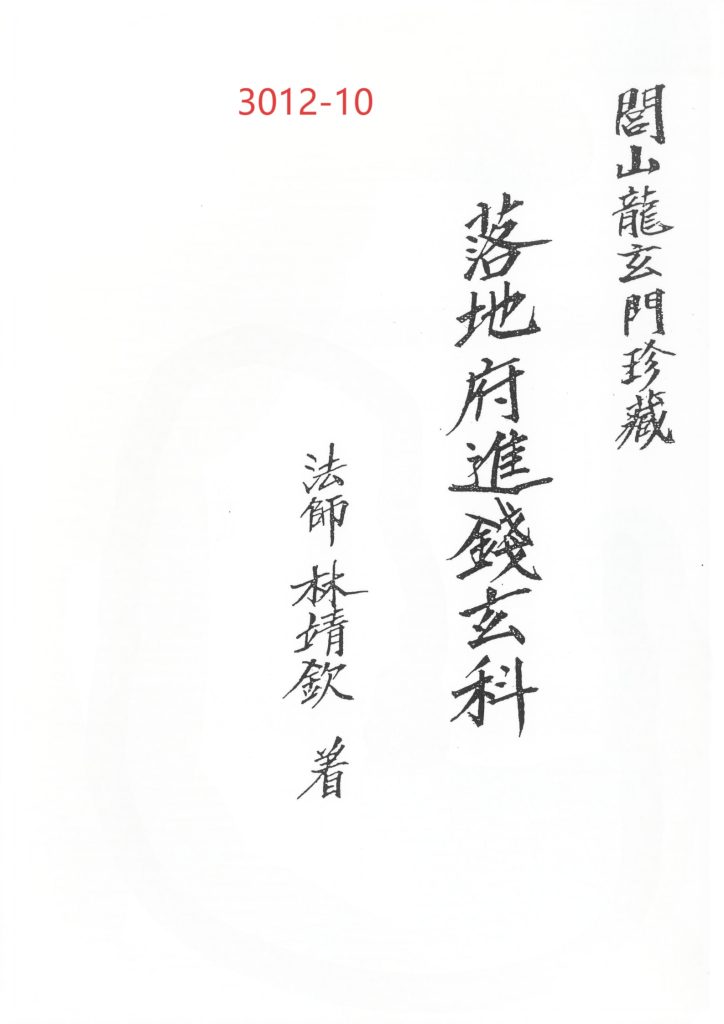 3012-10
閭山龍玄門珍藏
落地府進錢玄科
法師 林靖欽 着